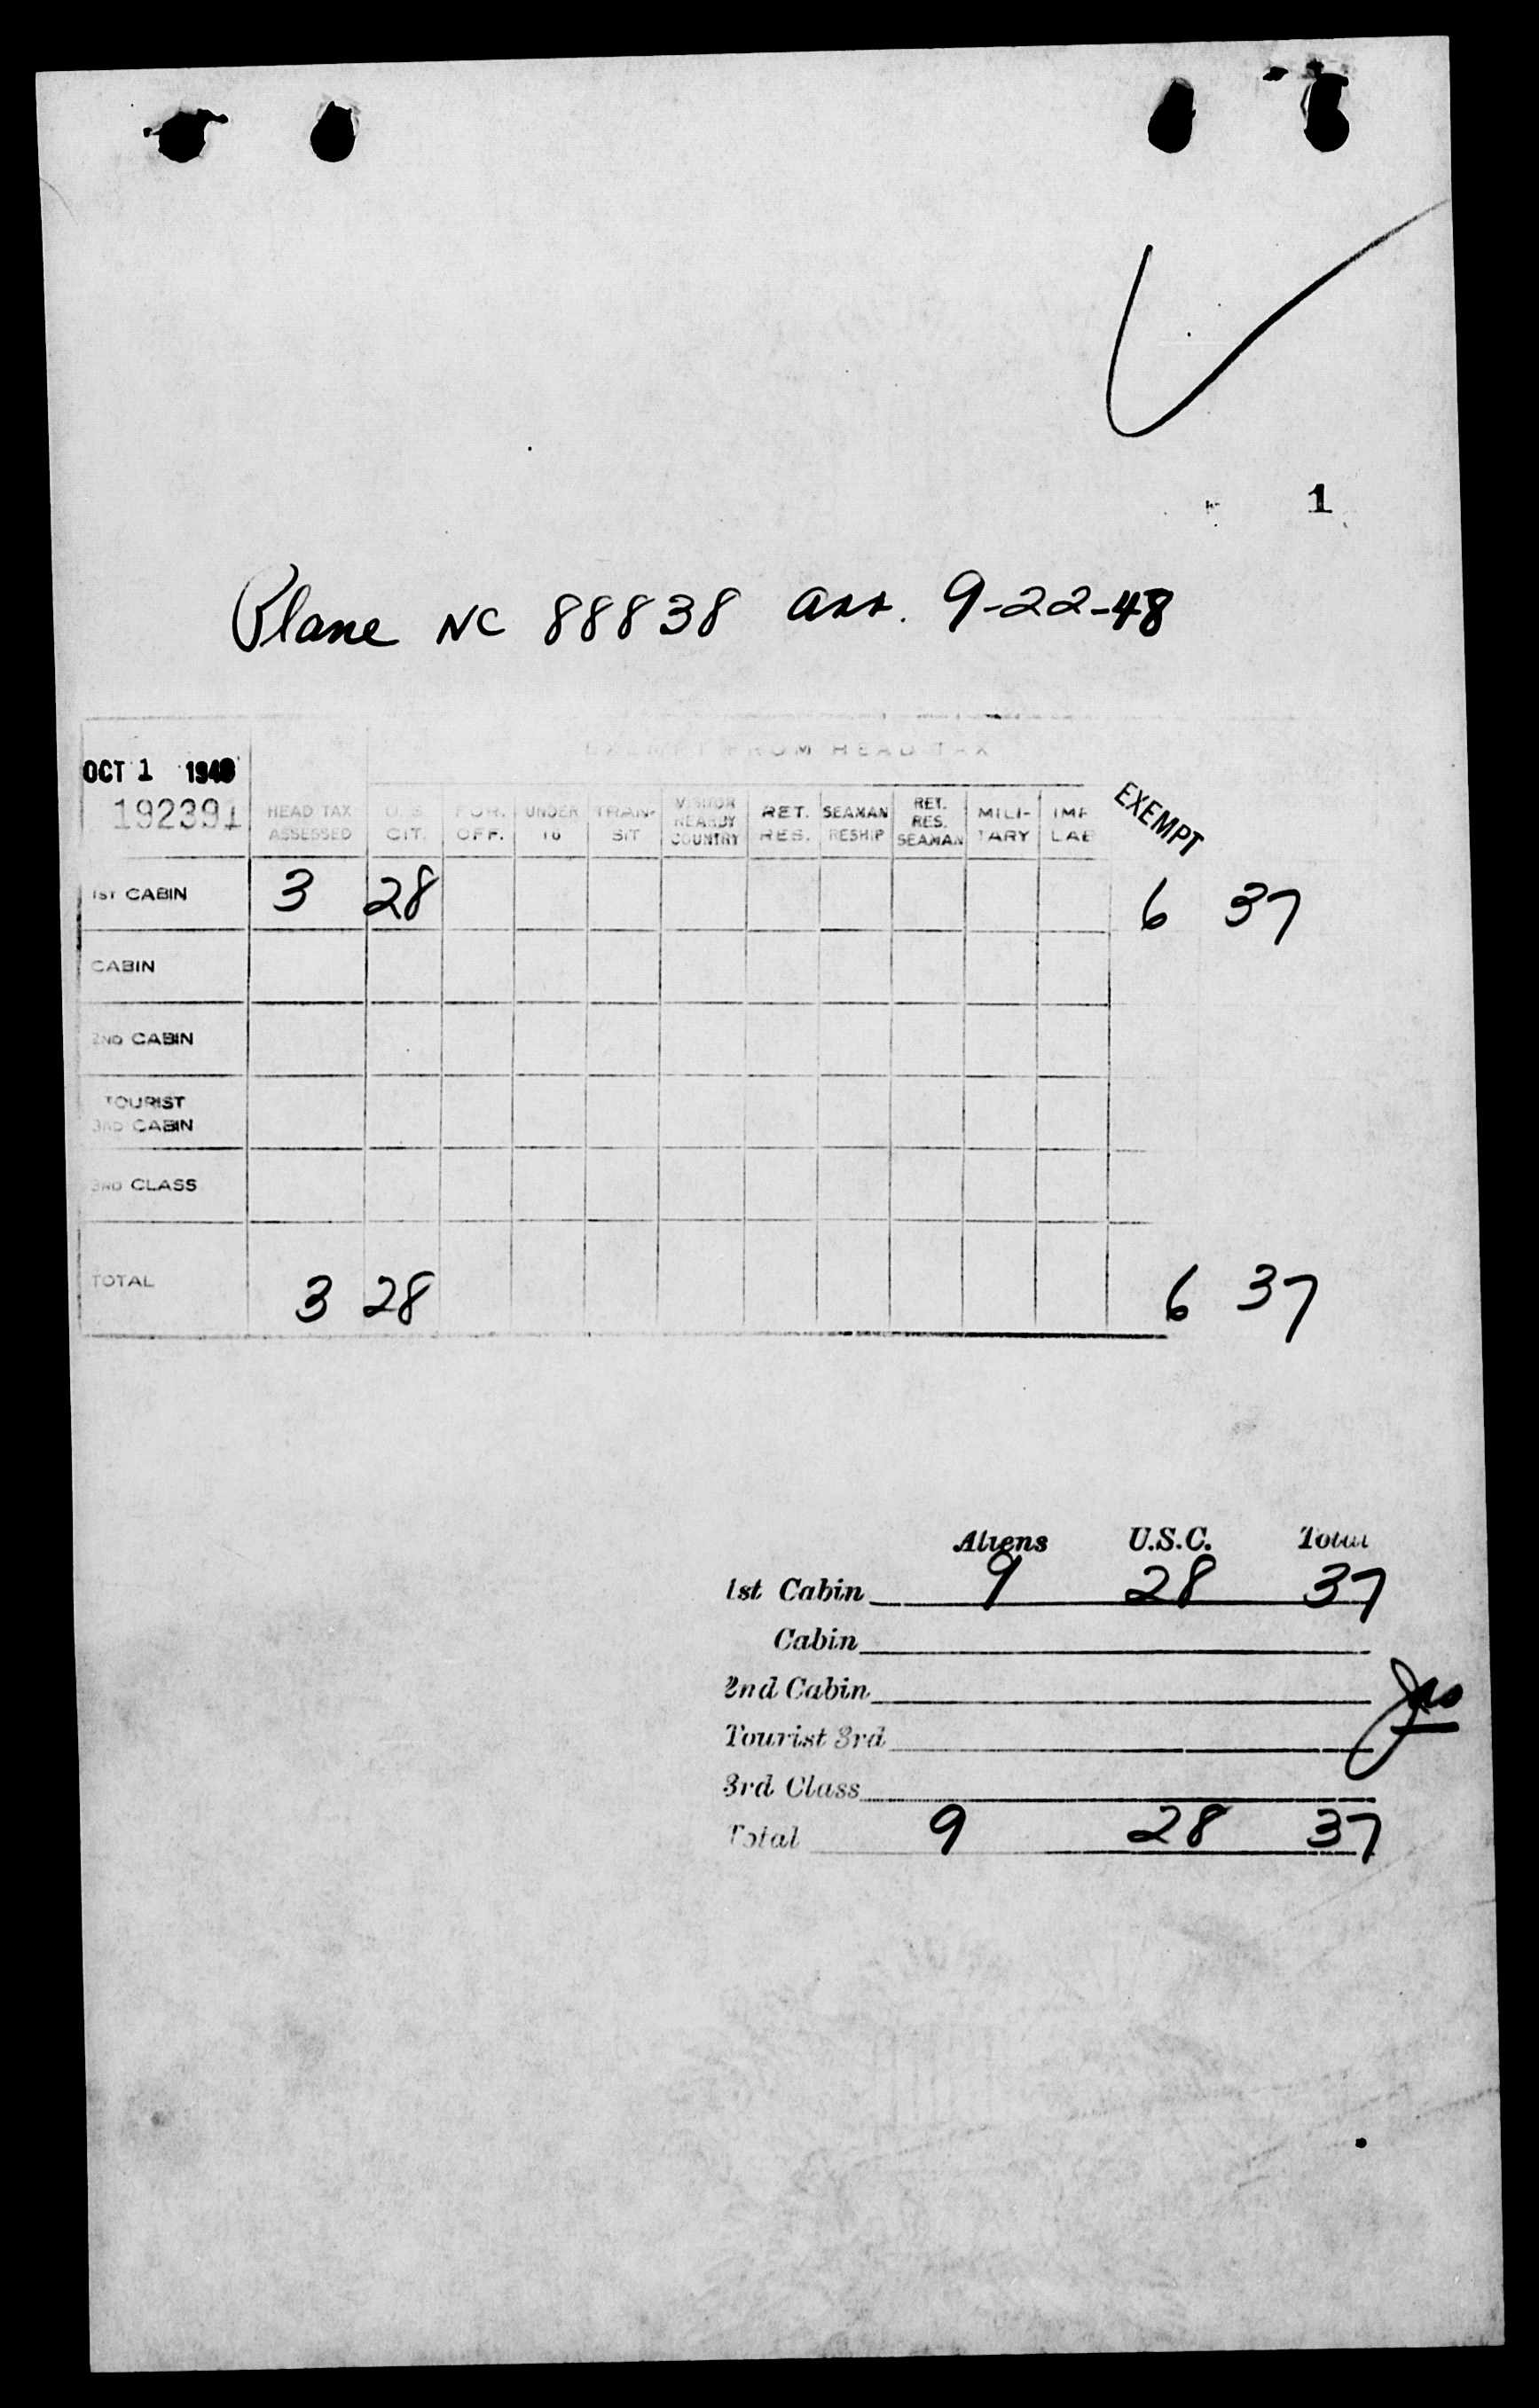 1
Plane NC 88838 arr. 9-22-48
EXEMPT FROM HEAD TAX
OCT 1 1948
192391
HEAD TAX ASSESSED
U. S. CIT.
FOR. OFF.
UNDER 16
TRAN-SIT
VISITOR NEARBY COUNTRY
RET. RES.
SEAMAN RESHIP
RET. RES. SEAMAN
MILI-TARY
LAB
EXEMPT
1ST CABIN 3 28 6 37
CABIN
2ND CABIN
TOURIST
3RD CABIN
3RD CLASS
TOTAL 3 28 6 37
Aliens U.S.C. Total
1st Cabin 9 28 37
Cabin
2nd Cabin
Tourist 3rd
3rd Class
Total 9 28 37